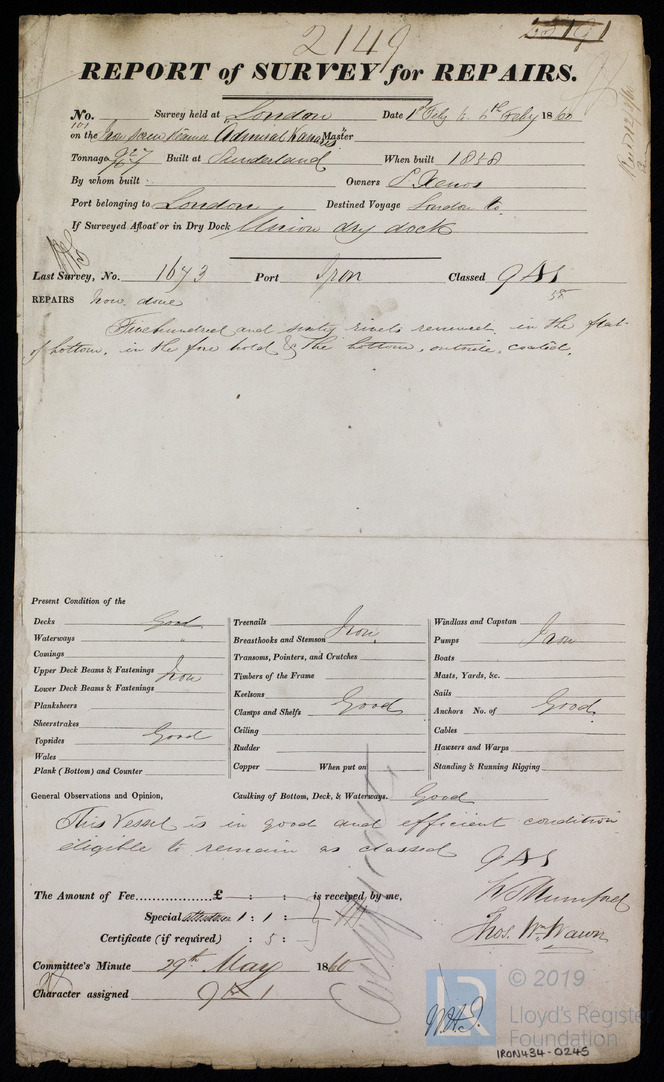 2149
REPORT of SURVEY for REPAIRS.
No. Survey held at London Date 1st Feby to 5th Feby 1860
on the Iron Screw Steamer "Admiral Kanaris" Master
Tonnage 927 Built at Sunderland When built 1858
By whom built Owners S Xenos
Port belonging to London Destined Voyage London to
If Surveyed Afloat or in Dry Dock Union dry dock
Last Survey, No. 1673 Port Iron Classed 9 A1
58
REPAIRS now done
Five hundred and sixty rivets renewed, in the flat
of bottom, in the fore hold & the bottom, outside, coated.
Present Condition of the
Decks Good
Waterways "
Comings
Upper Deck Beams & Fastenings Iron
Lower Deck Beams & Fastenings
Planksheers
Sheerstrakes
Topsides Good
Wales
Plank (Bottom) and Counter
Treenails
Breasthooks and Stemson Iron
Transoms, Pointers, and Crutches
Timbers of the Frame
Keelsons
Clamps and Shelfs Good
Ceiling
Rudder
Copper When put on
Windlass and Capstan
Pumps Iron
Boats
Masts, Yards, &c.
Sails
Anchors No. of Good
Cables
Hawsers and Warps
Standing & Running Rigging
General Observations and Opinion, Caulking of Bottom, Deck, & Waterways. Good
This Vessel is in good and efficient condition
eligible to remain as classed 9 A1
The Amount of Fee £ : : is received by me,
Special attention 1 : 1 :
Certificate (if required) : 5 :
W S Mumford
Thos. Wm. Wawn
Committee's Minute 29th May 1860
Character assigned 9 A 1
W.H.J.
© 2019
LR
Lloyd's Register
Foundation
IRON434-0245